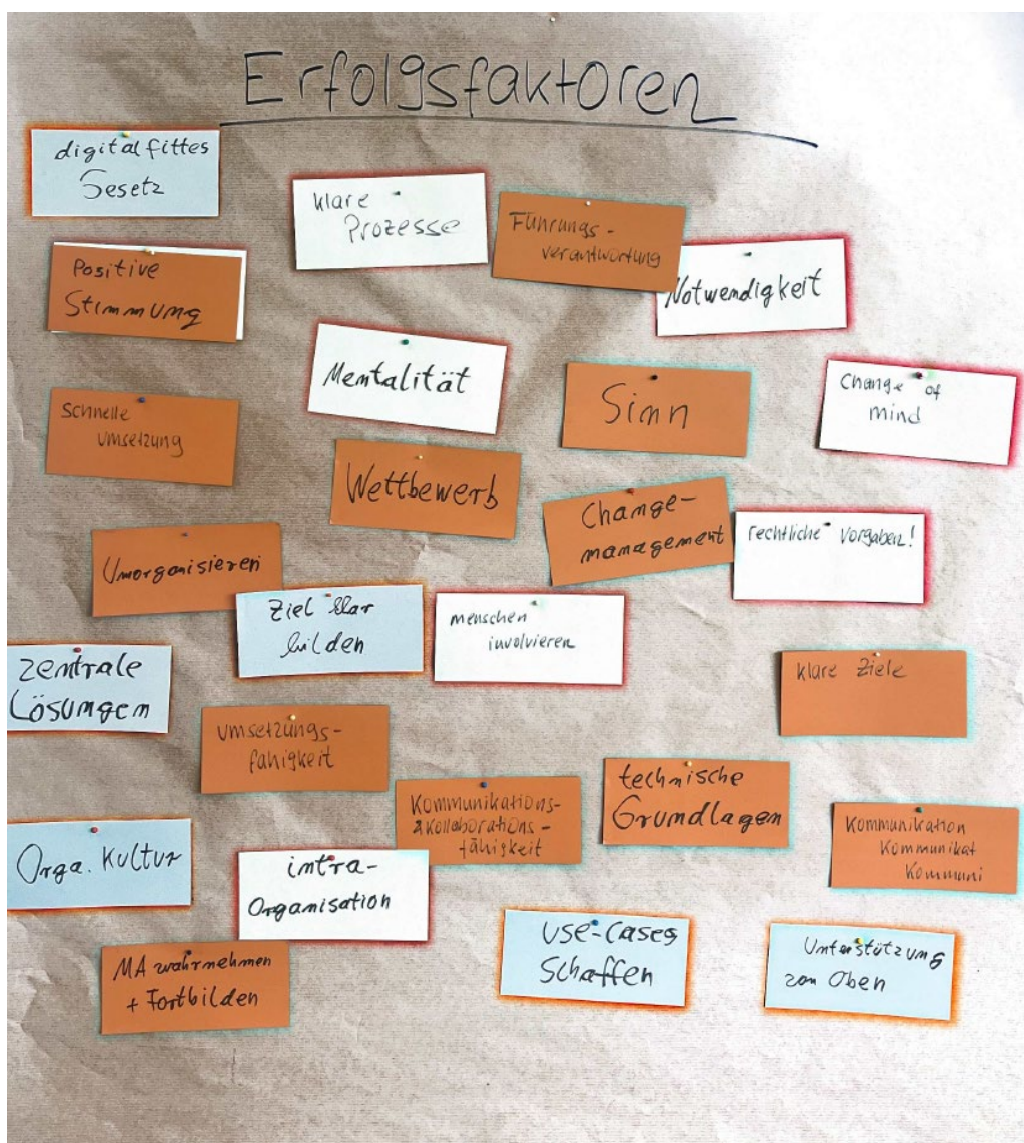 Erfolgsfaktoren
digital fittes
Gesetz
klare
Prozesse
Führungs-
verantwortung
Notwendigkeit
Positive
Stimmung
Mentalität
Sinn
Change of
mind
Schnelle
Umsetzung
Wettbewerb
Change-
management
rechtliche Vorgaben!
Umorganisieren
Ziel klar
bilden
menschen
involvieren
zentrale
Lösungen
klare Ziele
Umsetzungs-
fähigkeit
Kommunikations-
& Kollaborations-
fähigkeit
technische
Grundlagen
Kommunikation
Kommunikat
Kommuni
Orga. Kultur
intra-
Organisation
MA wahrnehmen
+ Fortbilden
USE-Cases
Schaffen
Unterstützung
von Oben